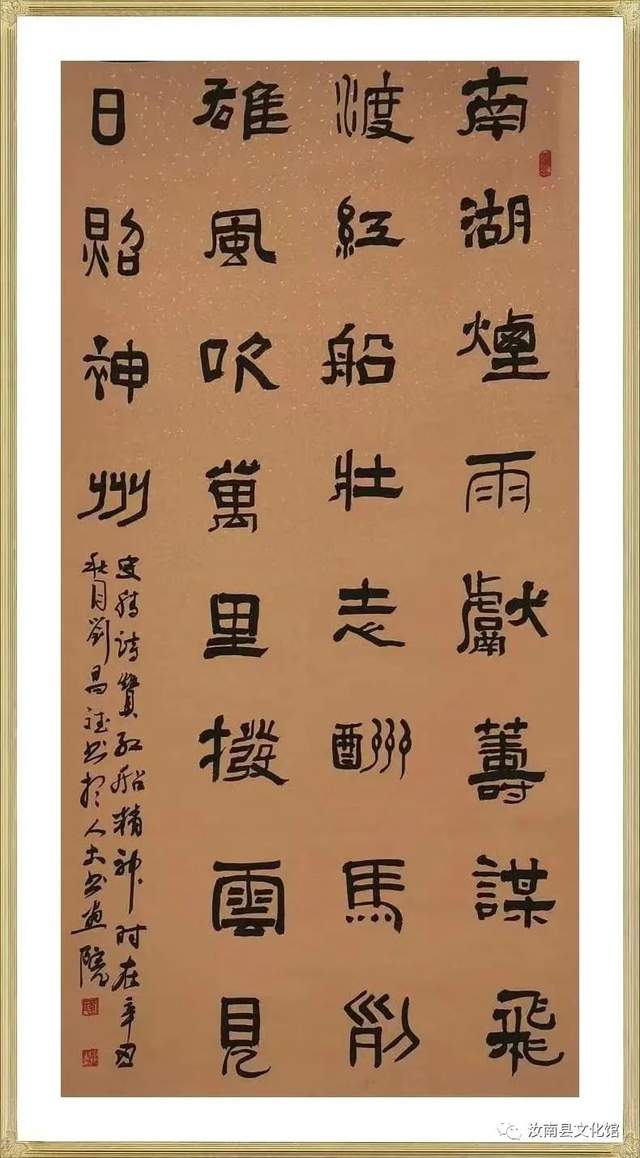 南湖煙雨獻籌謀飛
渡紅船壯志酬馬列
雄風吹萬里撥雲見
日照神州
詩贊紅船精神时在辛丑
秋月劉昌书於人大书画院
汝南县文化馆